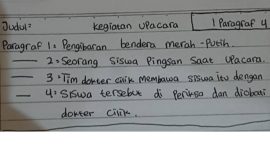 Judul: kegiatan upacara 1 Paragraf 4
Paragraf 1: Pengibaran bendera merah-putih.
2: Seorang siswa pingsan saat upacara.
3: Tim dokter cilik membawa siswa itu dengan
4: Siswa tersebut di periksa dan diobati
dokter cilik.